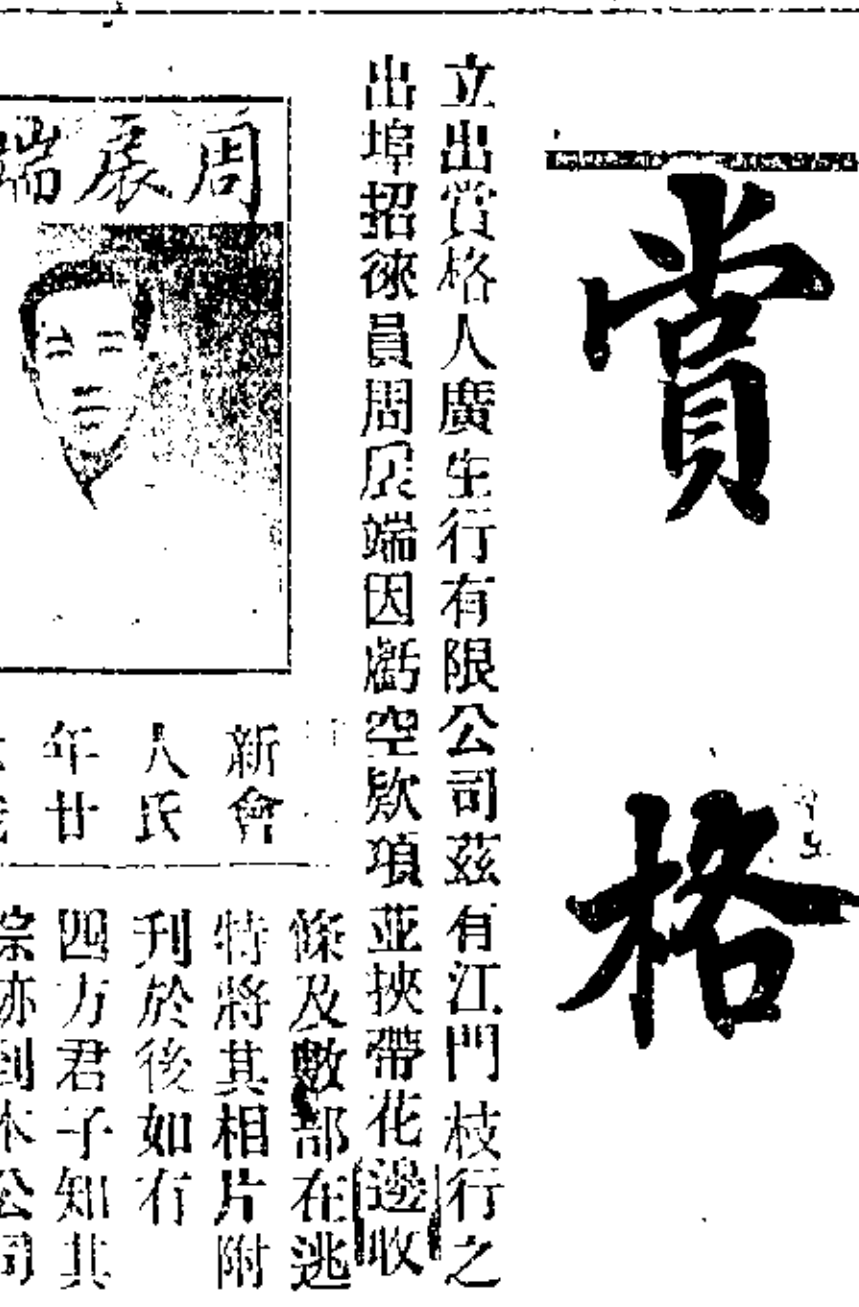 賞格
立出賞格人廣生行有限公司茲有江門枝行之
出埠招徠員周展端因虧空欵項並挾帶花邊收
條及數部在逃
特將其相片附
刊於後如有
四方君子知其
踪跡到本公司
周展端
新會
人氏
年廿